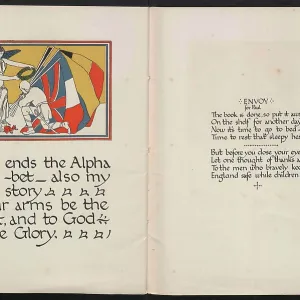 ends the Alpha
-bet — also my
story
r arms be the
t, and to God
e Glory.
ENVOY
for Paul.
The book is done, so put it aw
On the shelf for another day
Now its time to go to bed
Time to rest that sleepy hea
But before you close your eye
Let one thought of thanks a
To the men who bravely kee
England safe while children